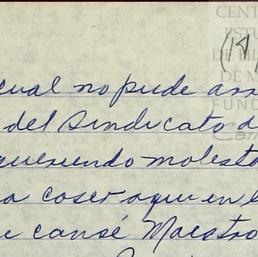 CENT
ESTU
DE HI
DE M
FUND
(14)
cual no pude as
del Sindicato d
queriendo molesta
a coser aqui en l
e cansé Maestro